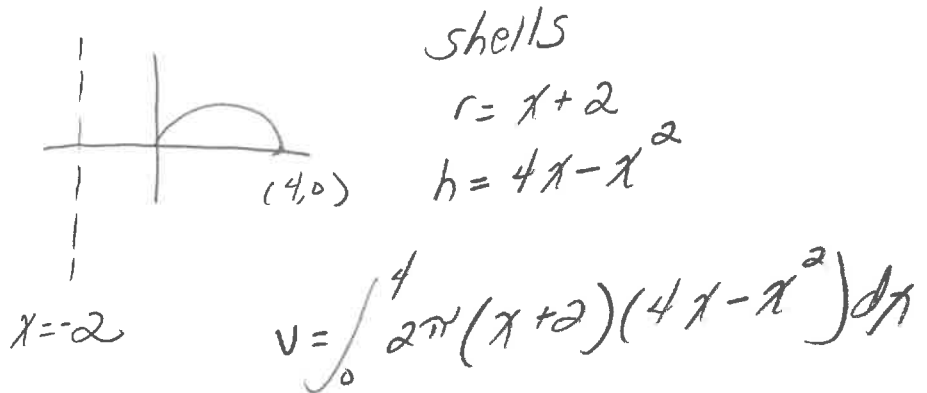 shells
r = x + 2
h = 4x - x²
(4,0)
x = -2
v = ∫₀⁴ 2π(x + 2)(4x - x²)dx